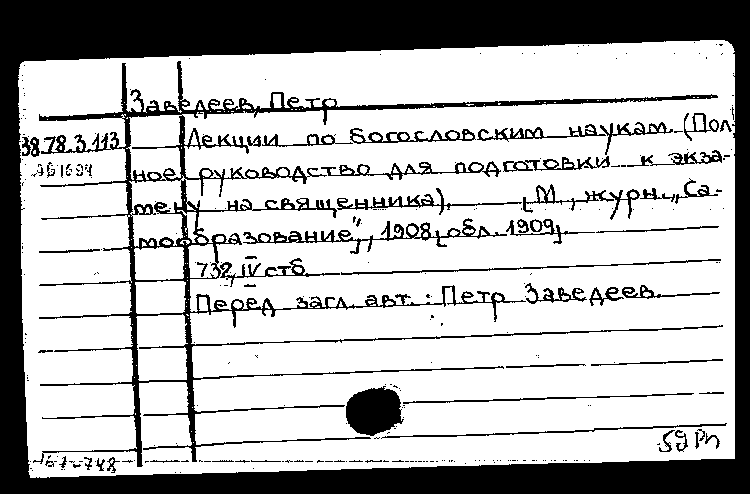 Заведеев, Петр
38.78.3.113
Лекции по богословским наукам. (Пол-
ное руководство для подготовки к экза-
мену на священника). [М., журн. „Са-
мообразование", 1908, обл. 1909].
732, IV стб.
Перед загл. авт.: Петр Заведеев.
167-748